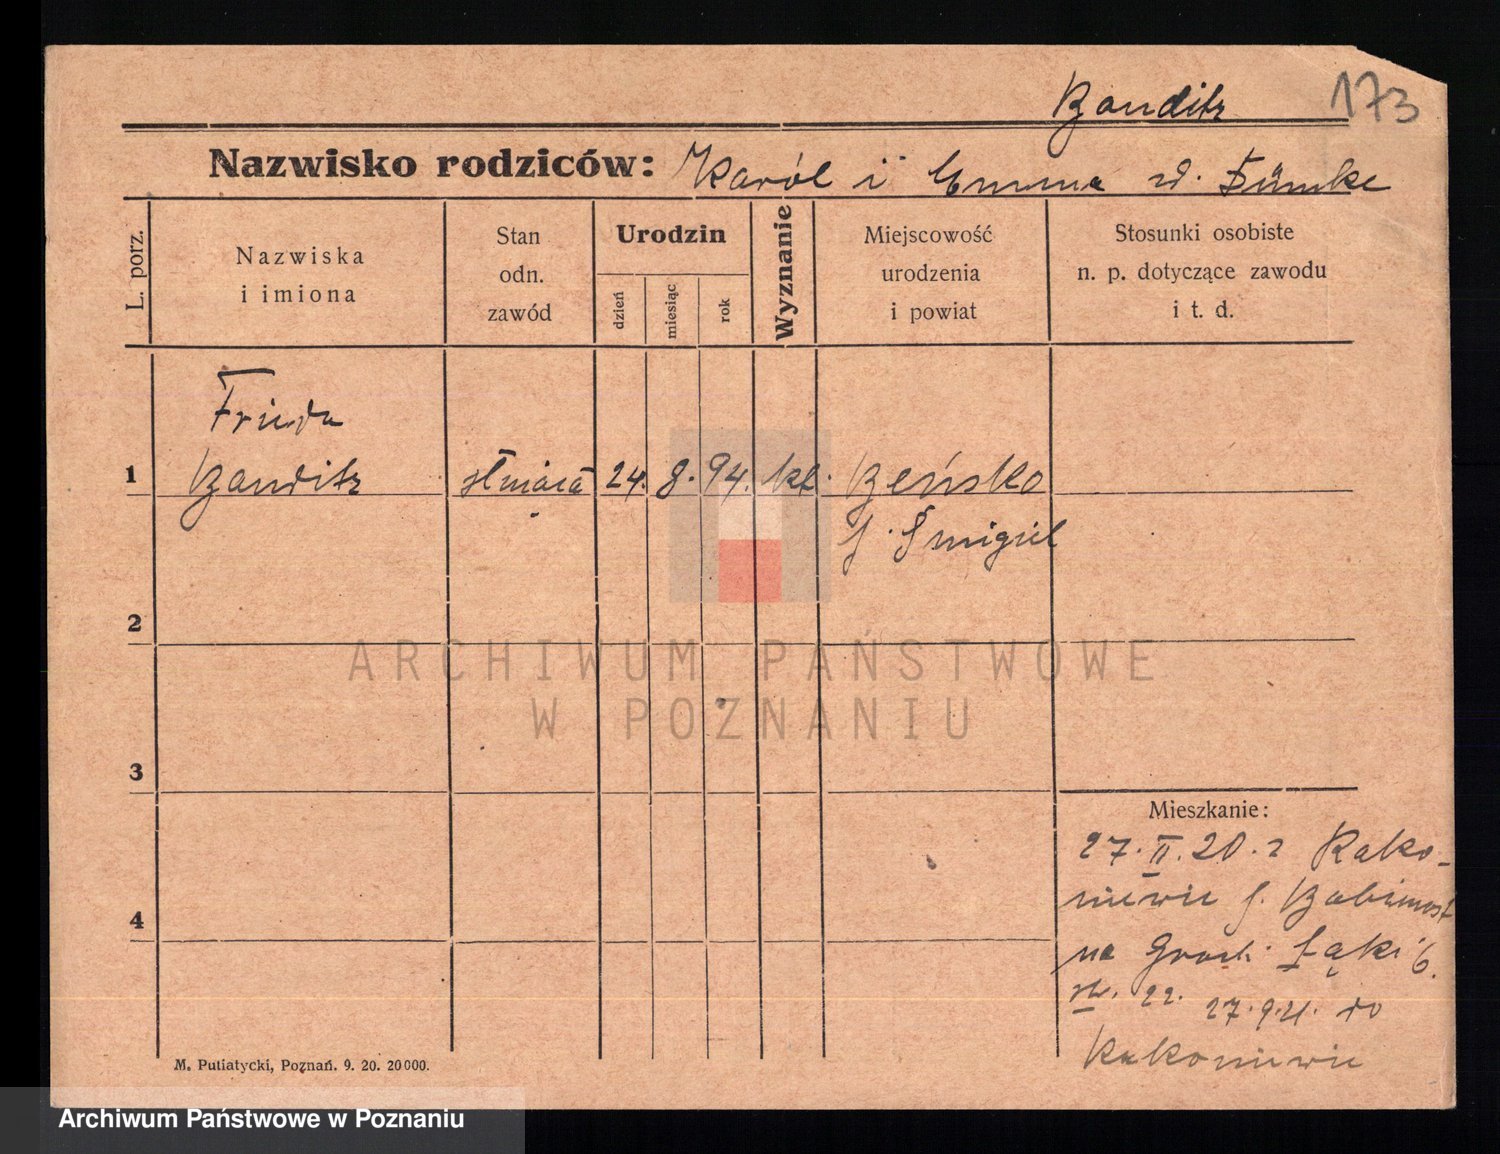 Banditz 173
Nazwisko rodziców: Karól i Emma d. Dümke
L. porz.
Nazwiska
i imiona
Stan
odn.
zawód
Urodzin
dzień
miesiąc
rok
Wyznanie
Miejscowość
urodzenia
i powiat
Stosunki osobiste
n. p. dotyczące zawodu
i t. d.
Frieda
1 Banditz 24. 8. 94. kt. Beńsko
f. Śmigiel
2
ARCHIWUM PAŃSTWOWE
W POZNANIU
3
Mieszkanie:
27. II. 20. z Rako-
niewic f. Babimost
4
na Łąki 6.
22. 27.9.21. do
Rakoniewic
M. Putiatycki, Poznań. 9. 20. 20000.
Archiwum Państwowe w Poznaniu